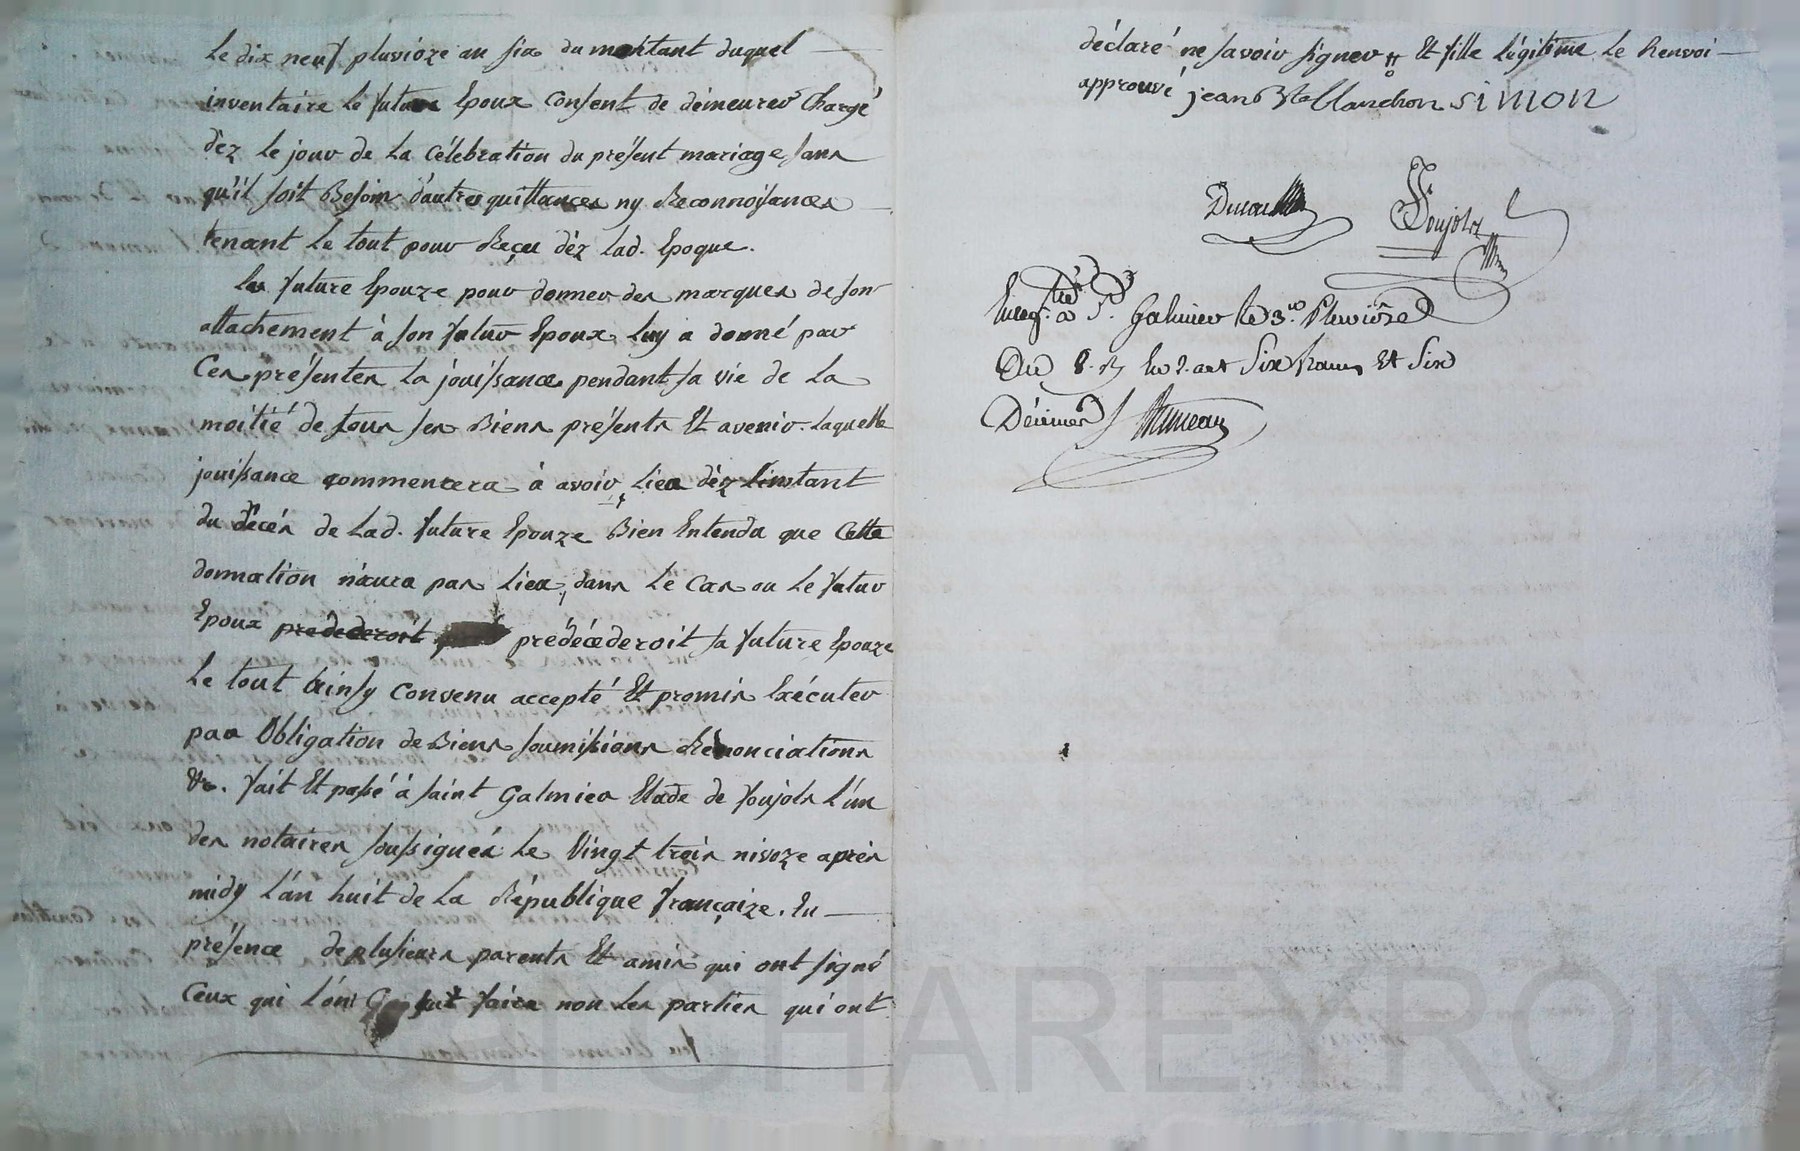 le dix neuf pluvióze an six du montant duquel
inventaire le future Epoux consent de démeurer chargé
déz le jour de la célébration du présent mariage, sans
qu'il soit Besoin d'autres quittances ny Reconnoissances
tenant le tout pour Reçu déz lad. Epoque.
la future Epouze pour donner des marques de son
attachement à son futur Epoux luy a donné par
ces présentes la jouissance pendant sa vie de la
moitié de tous ses Biens présents Et avenir. laquelle
jouissance commencera à avoir lieu déz l'instant
du décés de lad. future Epouze Bien Entendu que cette
donnation n'aura pas lieu, dans le cas ou le futur
Epoux predederoit prédécéderoit sa future Epouze
le tout Ainsy convenu accepté Et promis Exécuter
par Obligation de Biens soumissions Rénonciations
&c. fait Et passé à saint Galmier Etude de foujols l'un
des notaires soussignés le vingt trois nivoze aprés
midy l'an huit de la République françaize. En
présence de plusieurs parents Et amis qui ont signé
ceux qui l'ont sut faire non les parties qui ont
déclaré ne savoir signer Et fille légitime le Renvoi
approuvé jean Bte blanchon SIMON
foujols
Enregtré à St. Galmier le 3. Pluviôse
an 8. Six francs Et Six
Décimes
SCHAREYRON